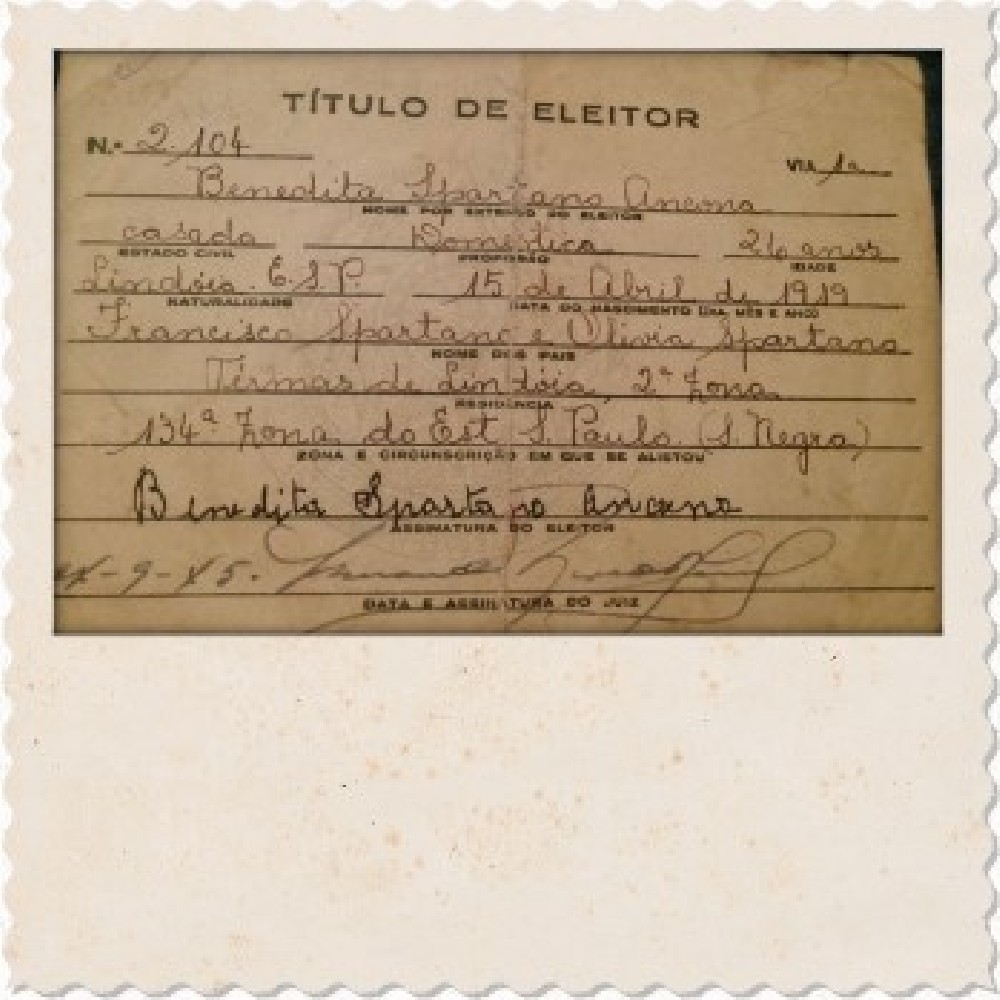 TÍTULO DE ELEITOR
N.º 2.104
VIA 1a
Benedita Spartano Ancona
NOME POR EXTENSO DO ELEITOR
casada Domestica 26 anos
ESTADO CIVIL PROFISSÃO IDADE
Lindóia. E.S.P. 15 de Abril de 1919
NATURALIDADE DATA DO NASCIMENTO (DIA, MÊS E ANO)
Francisco Spartano e Olivia Spartano
NOME DOS PAIS
Têrmas de Lindóia, 2ª Zona
RESIDÊNCIA
134ª Zona do Est. S. Paulo. (S. Negra)
ZONA E CIRCUNSCRIÇÃO EM QUE SE ALISTOU
Benedita Spartano Ancona
ASSINATURA DO ELEITOR
DATA E ASSINATURA DO JUIZ